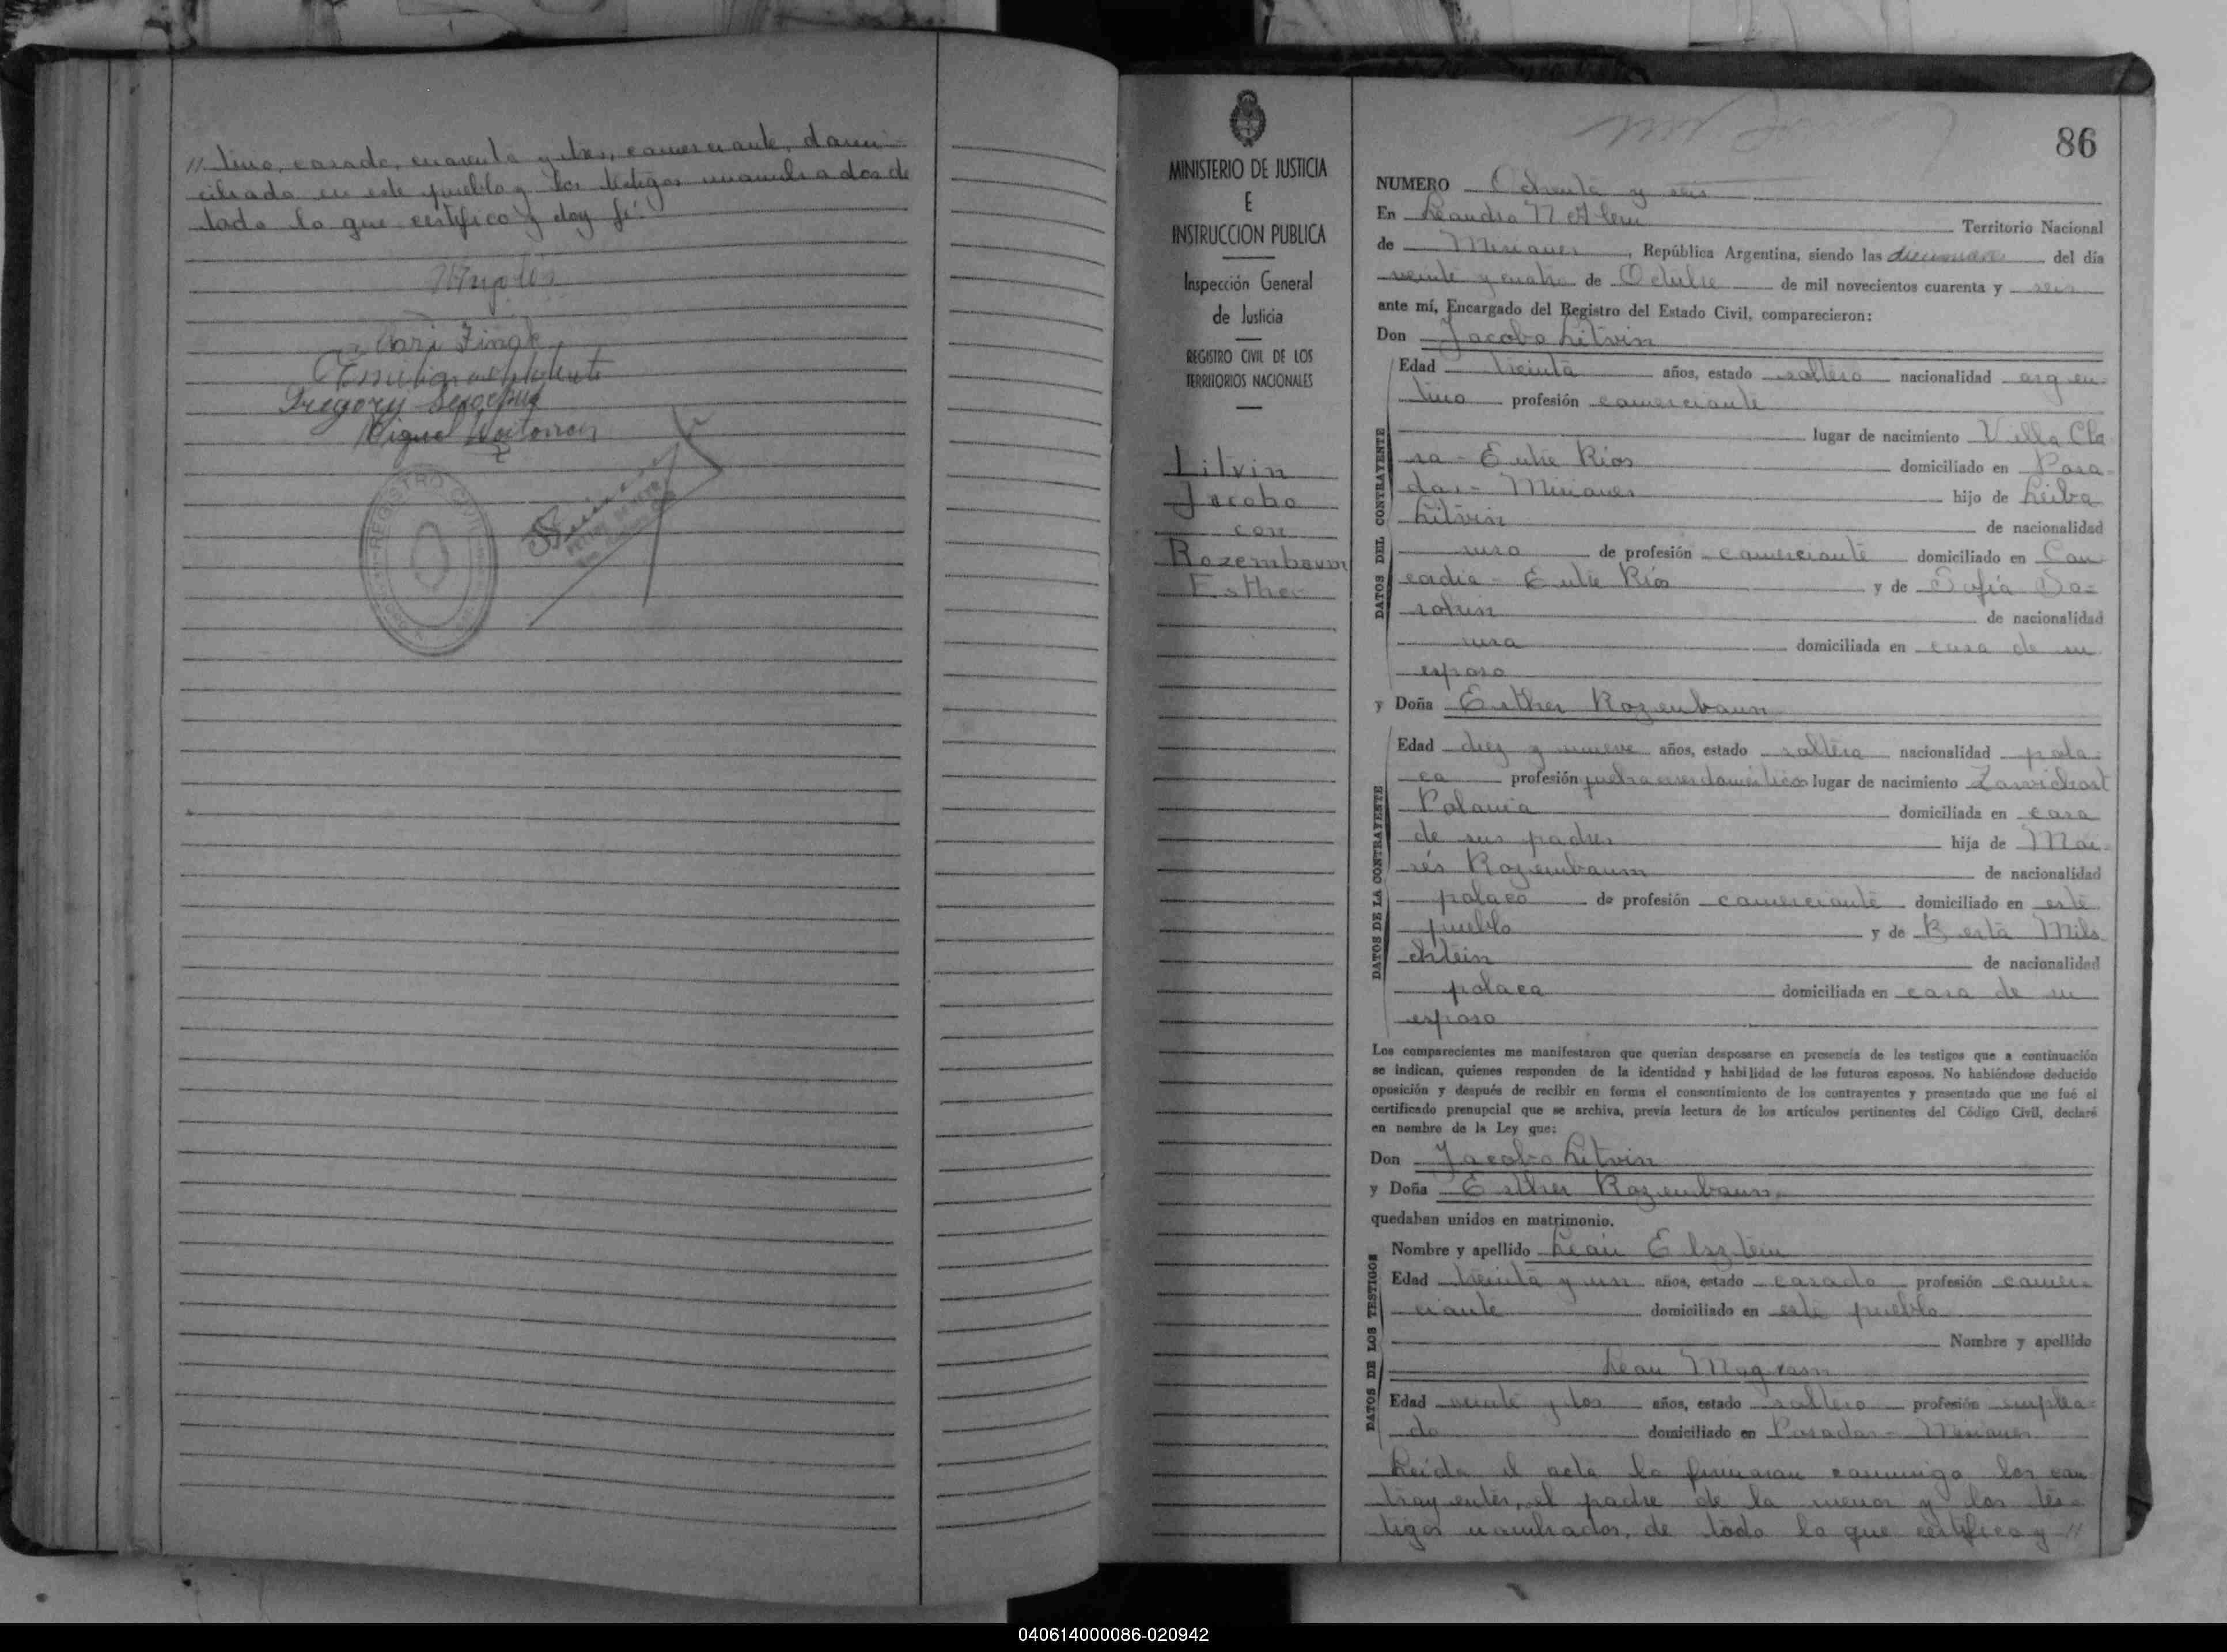 // tino, casado, cuarenta y tres, comerciante, domi-
ciliado en este pueblo y los testigos nombrados de
todo lo que certifico y doy fé.
Gregory
Miguel
REGISTRO CIVIL
MINISTERIO DE JUSTICIA
E
INSTRUCCION PUBLICA
Inspección General
de Justicia
REGISTRO CIVIL DE LOS
TERRITORIOS NACIONALES
Litvin
Jacobo
con
Rozembaum
Esther
86
NUMERO Ochenta y seis
En Leandro N. Alem Territorio Nacional
de Misiones, República Argentina, siendo las diecinueve del día
veinte y cuatro de Octubre de mil novecientos cuarenta y seis
ante mí, Encargado del Registro del Estado Civil, comparecieron:
Don Jacobo Litvin
DATOS DEL CONTRAYENTE
Edad treinta años, estado soltero nacionalidad argen-
tino profesión comerciante
lugar de nacimiento Villa Cla
ra - Entre Ríos domiciliado en Posa-
das - Misiones hijo de Leiba
Litvin de nacionalidad
ruso de profesión comerciante domiciliado en Con-
cordia - Entre Ríos y de Sofía So-
rokin de nacionalidad
rusa domiciliada en casa de su
esposo
y Doña Esther Rozenbaum
DATOS DE LA CONTRAYENTE
Edad diez y nueve años, estado soltera nacionalidad pola-
ca profesión quehaceres domésticos lugar de nacimiento Zawichost
Polonia domiciliada en casa
de sus padres hija de Moi-
sés Rozenbaum de nacionalidad
polaco de profesión comerciante domiciliado en este
pueblo y de Berta Mils
chtein de nacionalidad
polaca domiciliada en casa de su
esposo
Los comparecientes me manifestaron que querían desposarse en presencia de los testigos que a continuación
se indican, quienes responden de la identidad y habilidad de los futuros esposos. No habiéndose deducido
oposición y después de recibir en forma el consentimiento de los contrayentes y presentado que me fué el
certificado prenupcial que se archiva, previa lectura de los artículos pertinentes del Código Civil, declaré
en nombre de la Ley que:
Don Jacobo Litvin
y Doña Esther Rozenbaum
quedaban unidos en matrimonio.
DATOS DE LOS TESTIGOS
Nombre y apellido León Elsztein
Edad treinta y un años, estado casado profesión comer-
ciante domiciliado en este pueblo
Nombre y apellido
León Magram
Edad veinte y dos años, estado soltero profesión emplea-
do domiciliado en Posadas - Misiones
Leída el acta la firmaron conmigo los con
trayentes, el padre de la menor y los tes-
tigos nombrados, de todo lo que certifico y //
040614000086-020942